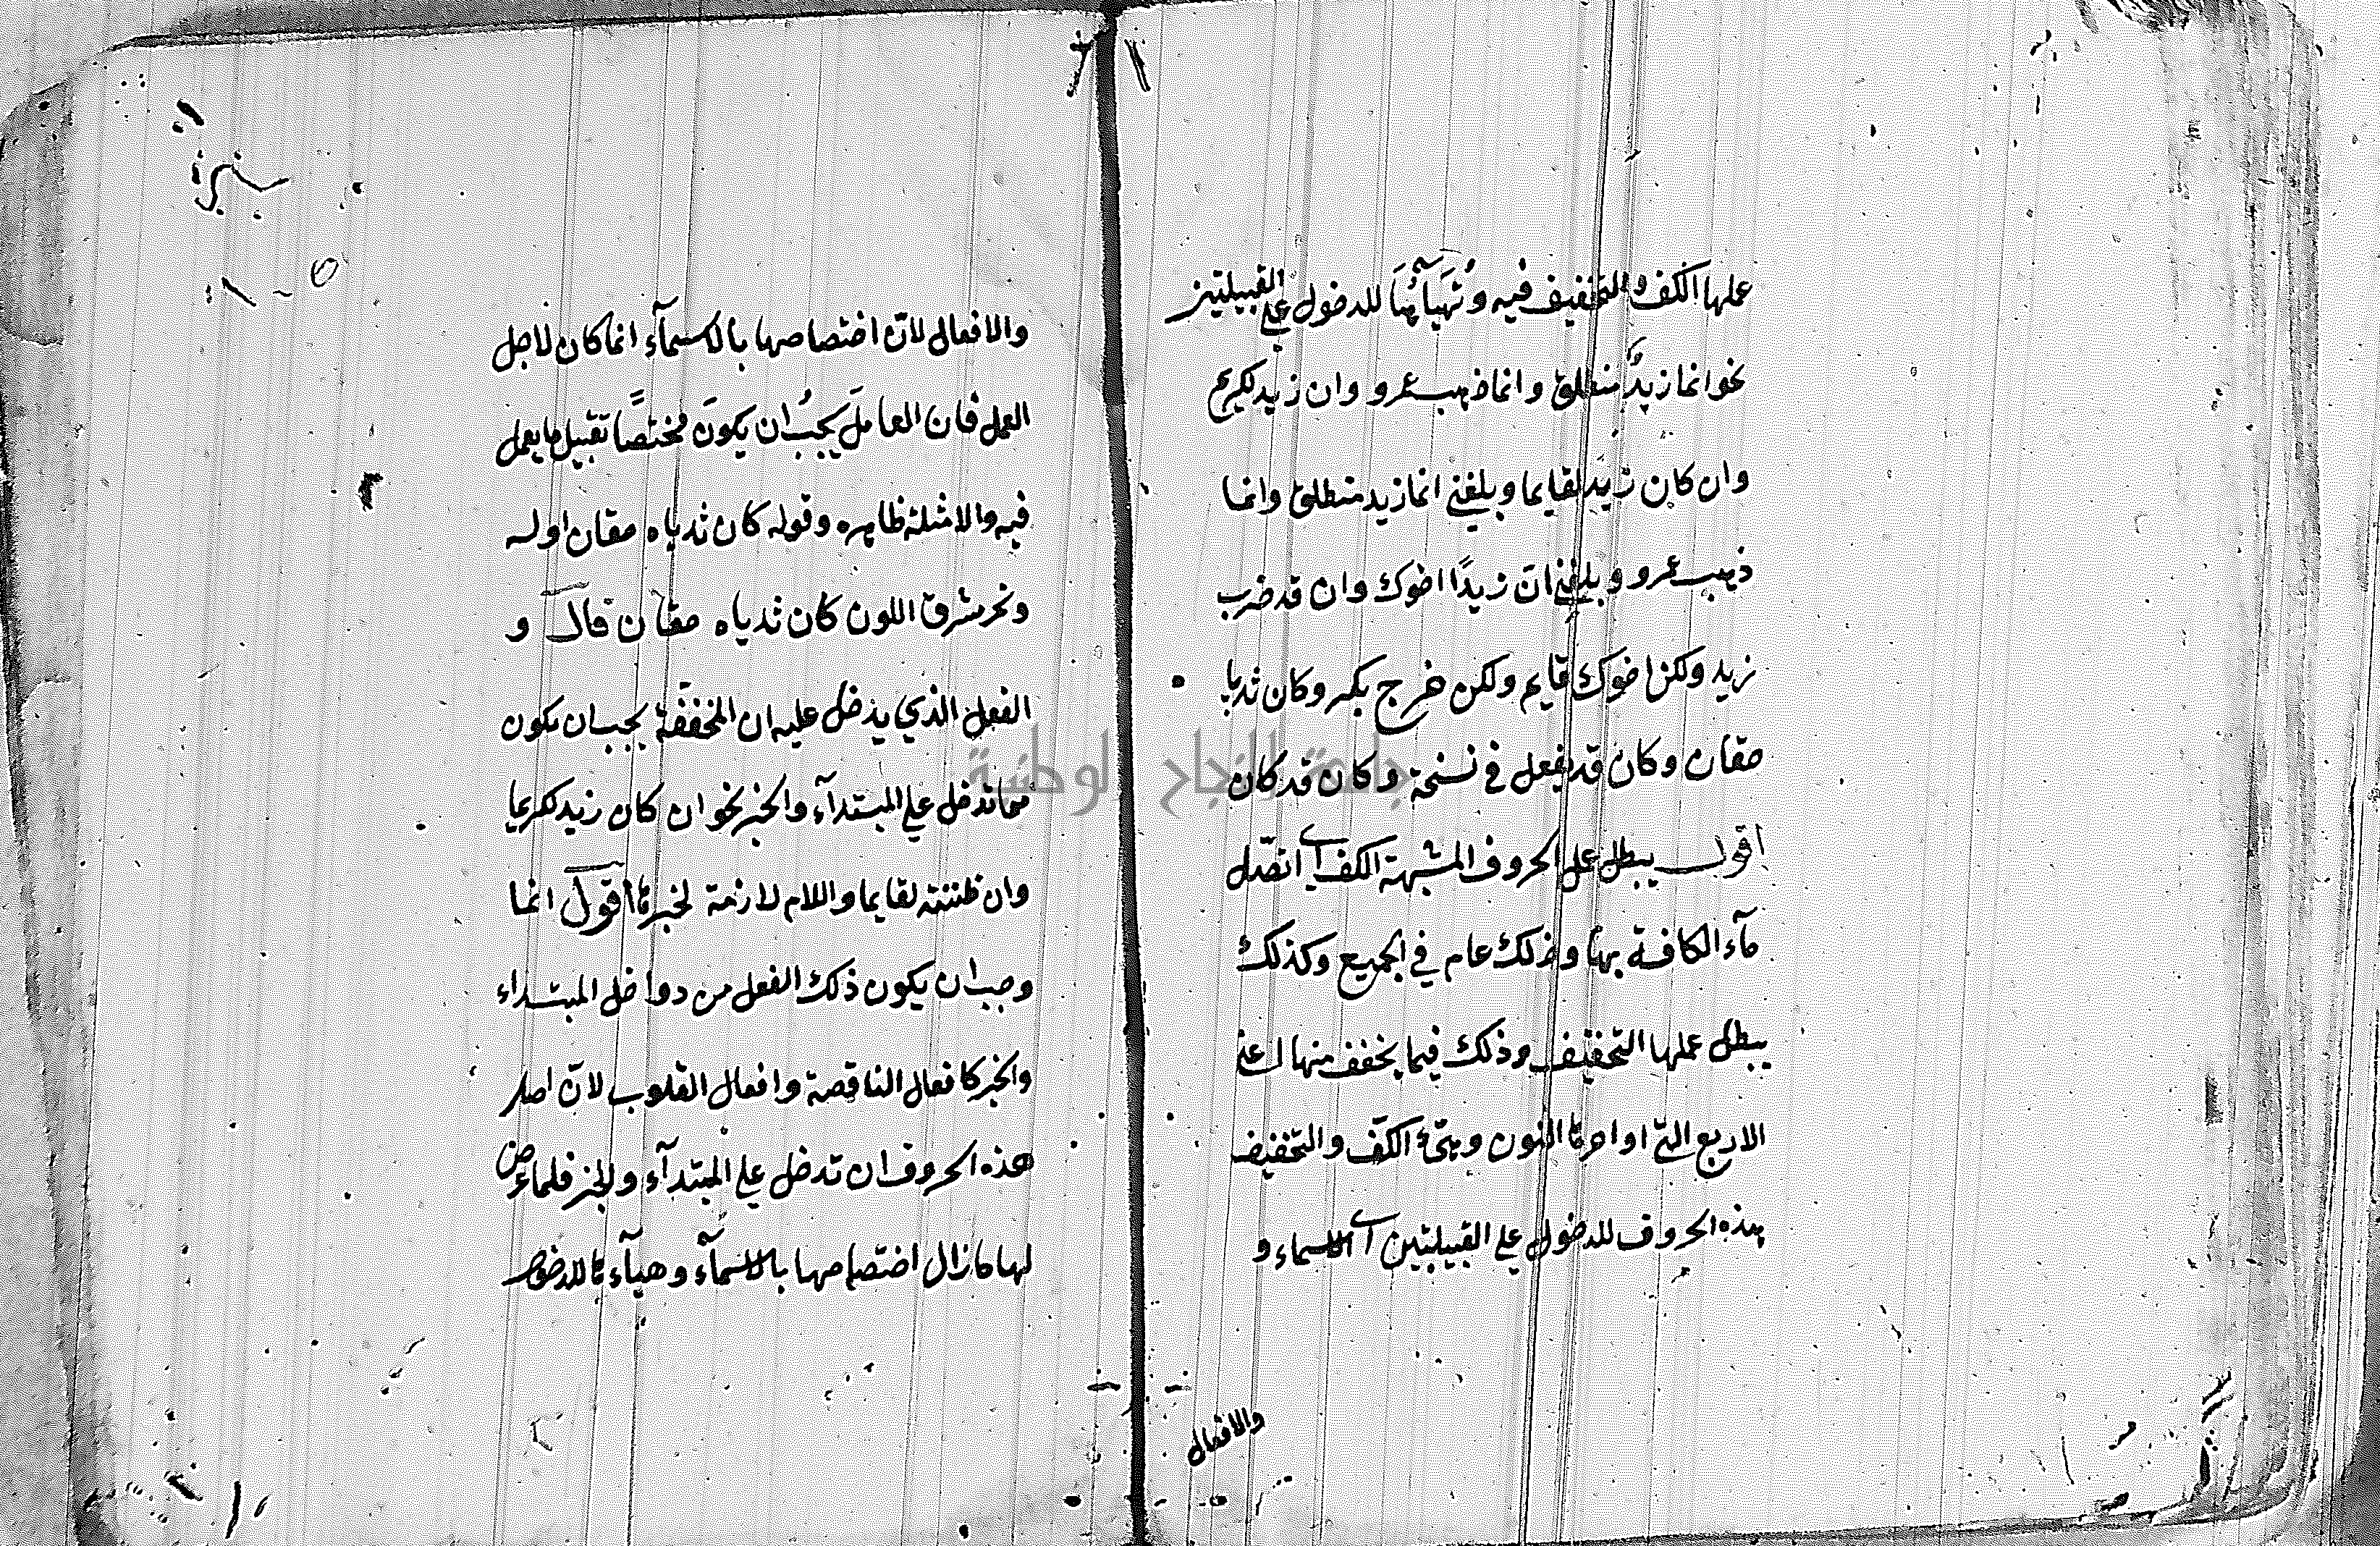 عملها الكف والتخفيف فيه وتهيأتها للدخول على القبيلتين
نحو انما زيد منطلق وانما ذهب عمرو وان زيد لكريم
وان كان زيد لقايما وبلغني انما زيد منطلق وانما
ذهب عمرو وبلغني ان زيدًا اخوك وان قد ضرب
زيد ولكن اخوك قايم ولكن خرج بكر وكان ثديا
حقان وكان قد يفعل في نسخة وكان قد كان
اقول يبطل عمل الحروف المشبهة الكف اي اتصل
مآء الكافة بها وذلك عام في الجميع وكذلك
يبطل عملها التخفيف وذلك فيما يخفف منها اعني
الاربع التي اواخرها النون ويتهيّأ الكف والتخفيف
هذه الحروف للدخول على القبيلتين اي الاسماء و
والافعال
والافعال لانّ اختصاصها بالاسمآء انما كان لاجل
العمل فان العاملَ يجبُ ان يكونَ مختصًا بقبيل ما يعمل
فيه والامثلة ظاهره وقوله كان ثدياه حقان اوله
ونحر مشرق اللون كان ثدياه حقان قال و
الفعل الذي يدخل عليه ان المخففة يجب ان يكون
مما تدخل على المبتدآء والخبر نحو ان كان زيد لكريما
وان ظننته لقايما واللام لازمة لخبرها اقول انما
وجب ان يكون ذلك الفعل من دواخل المبتداء
والخبر كافعال الناقصة وافعال القلوب لانّ اصل
هذه الحروف ان تدخل على المبتدآء والخبر فلما عرض
لها ما زال اختصاصها بالاسمآء وهيآءها للدخول
جامعة النجاح الوطنية